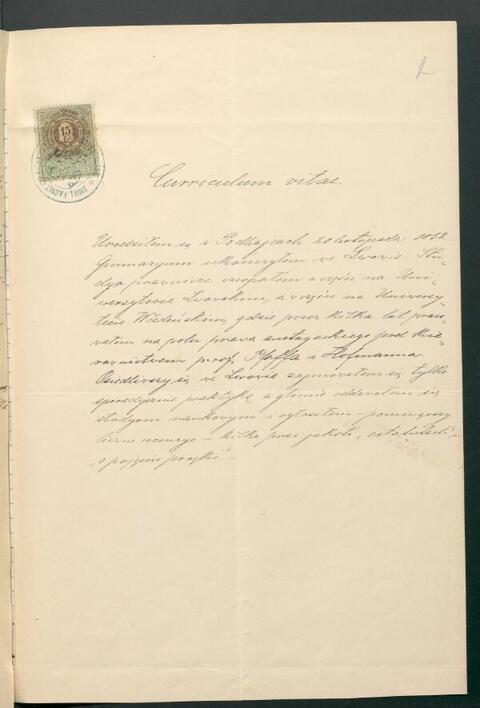 2
15
Curriculum vitae.
Urodziłem się w Podhajcach 20 listopada 1852.
Gimnazyum ukończyłem we Lwowie. Stu-
dya prawnicze w części na Uni-
wersytecie Lwowskim, a w części na Uniwersy-
tecie Wiedeńskim, gdzie przez kilka lat praco-
wałem na polu prawa austryackiego pod kie-
rownictwem prof. Pfaffa i Hofmanna.
Osiedliwszy się we Lwowie zajmowałem się tylko
sporadycznie praktyką, a głównie oddawałem się
studyom naukowym i ogłosiłem – pominąwszy
liczne recenzye – kilka prac jakoto:
"o pojęciu